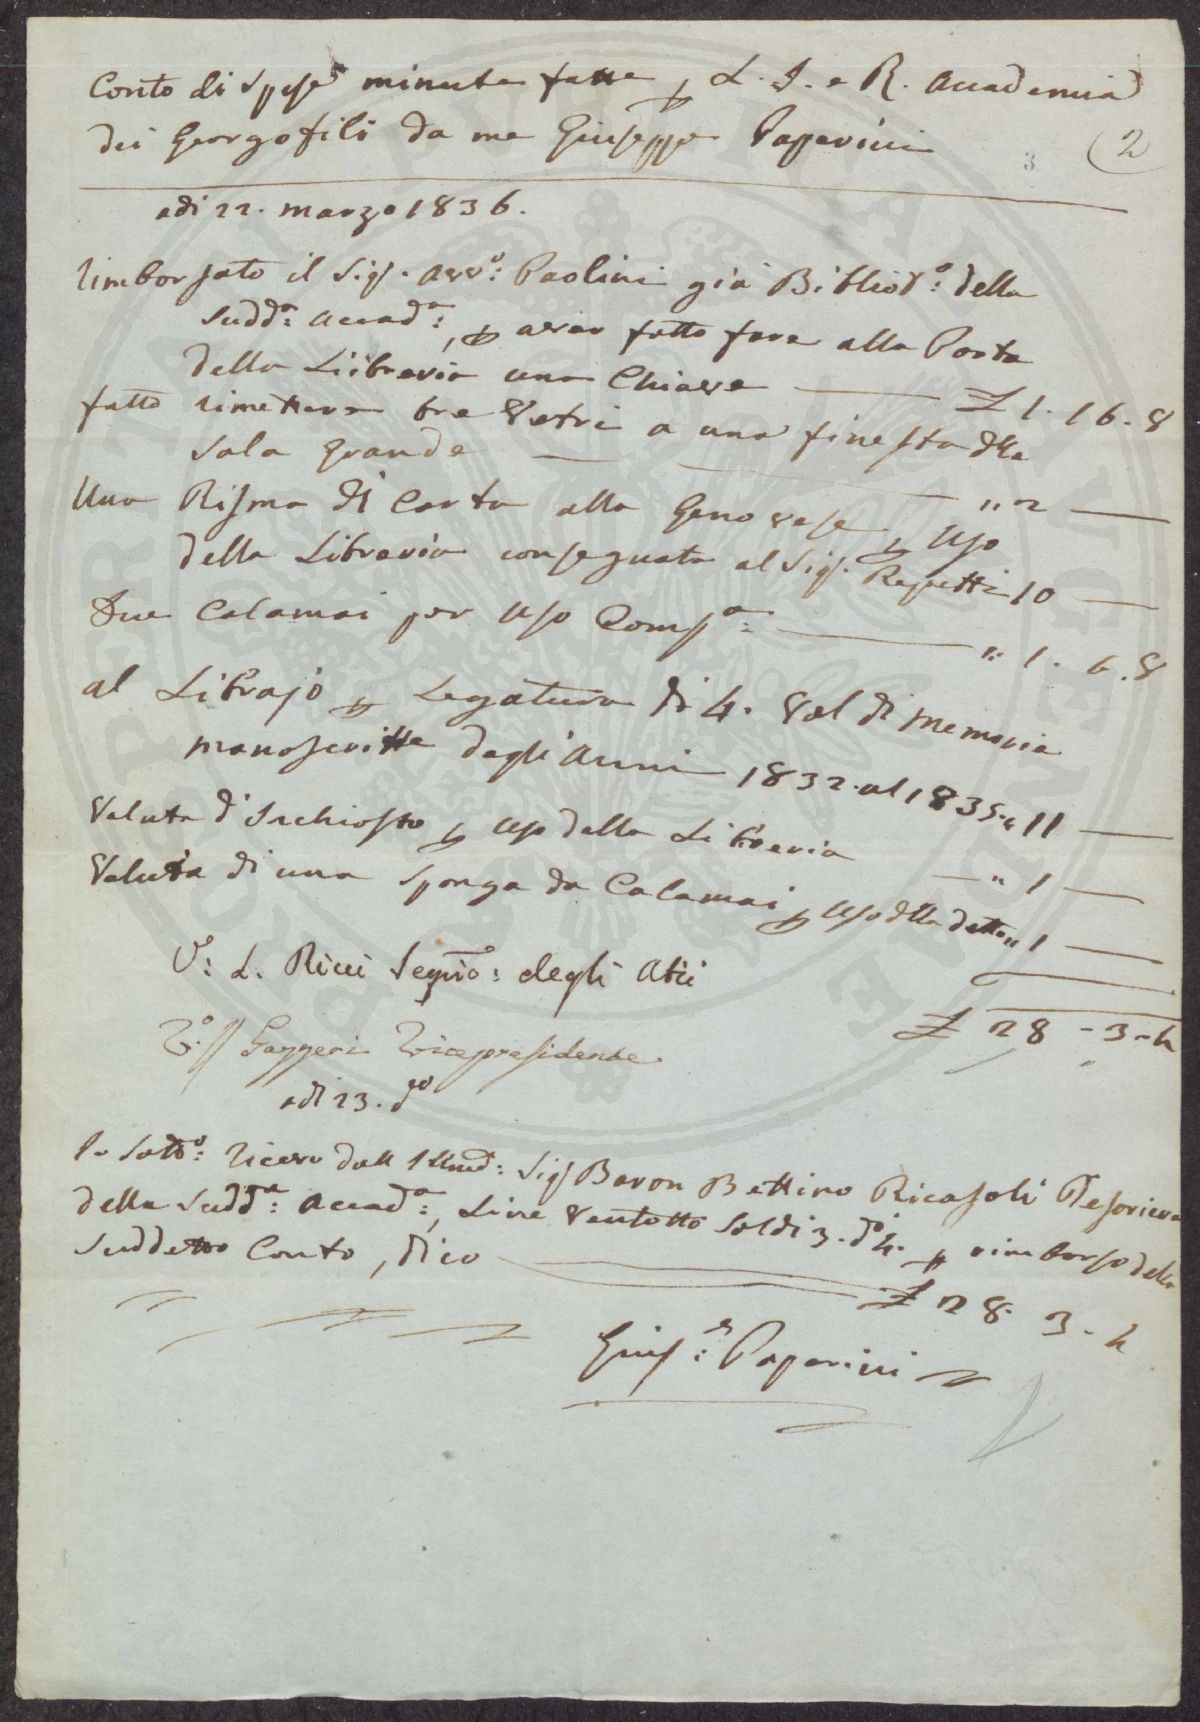 Conto di Spese minute fatte p L. I. e R. Accademia
dei Georgofili da me Giuseppe Paperini
3 (2
adi 22. marzo 1836.
Rimborsato il Sigr. Avvo: Paolini già Bliblioto: della
Sudda: Accada:, p aver fatto fare alla Porta
della Libreria una Chiave £ 1. 16. 8
fatto rimettere tre Vetri a una finestra dlla
Sala grande " 2
Una Risma di Carta alla Genovese p Uso
della Libreria consegnata al Sigr. Repetti 10
Due Calamai per Uso Compa: " 1. 6. 8
al Librajo p Legatura di 4. Vol di Memorie
manoscritte degli Anni 1832. al 1835. " 11
Valuta d'Inchiostro p uso della Libreria
" 1
Valuta di una Sponga da Calamai p uso dlla detta " 1
Vo: L. Ricci Segrio: degli Atti
£ 28 - 3 - 4
Vo. Gazzeri Vicepresidente
adi 23. do
Io Sotto: ricevo dall Illmo: Sigr Baron Bettino Ricasoli Tesoriere
della Sudda: Accada:, Lire Ventotto Soldi 3. di 4. p rimborso della
Suddetto Conto, dico
£ 28. 3 - 4
Giuse: Paperini
PROSPERITATI PUBLICAE AUGENDAE